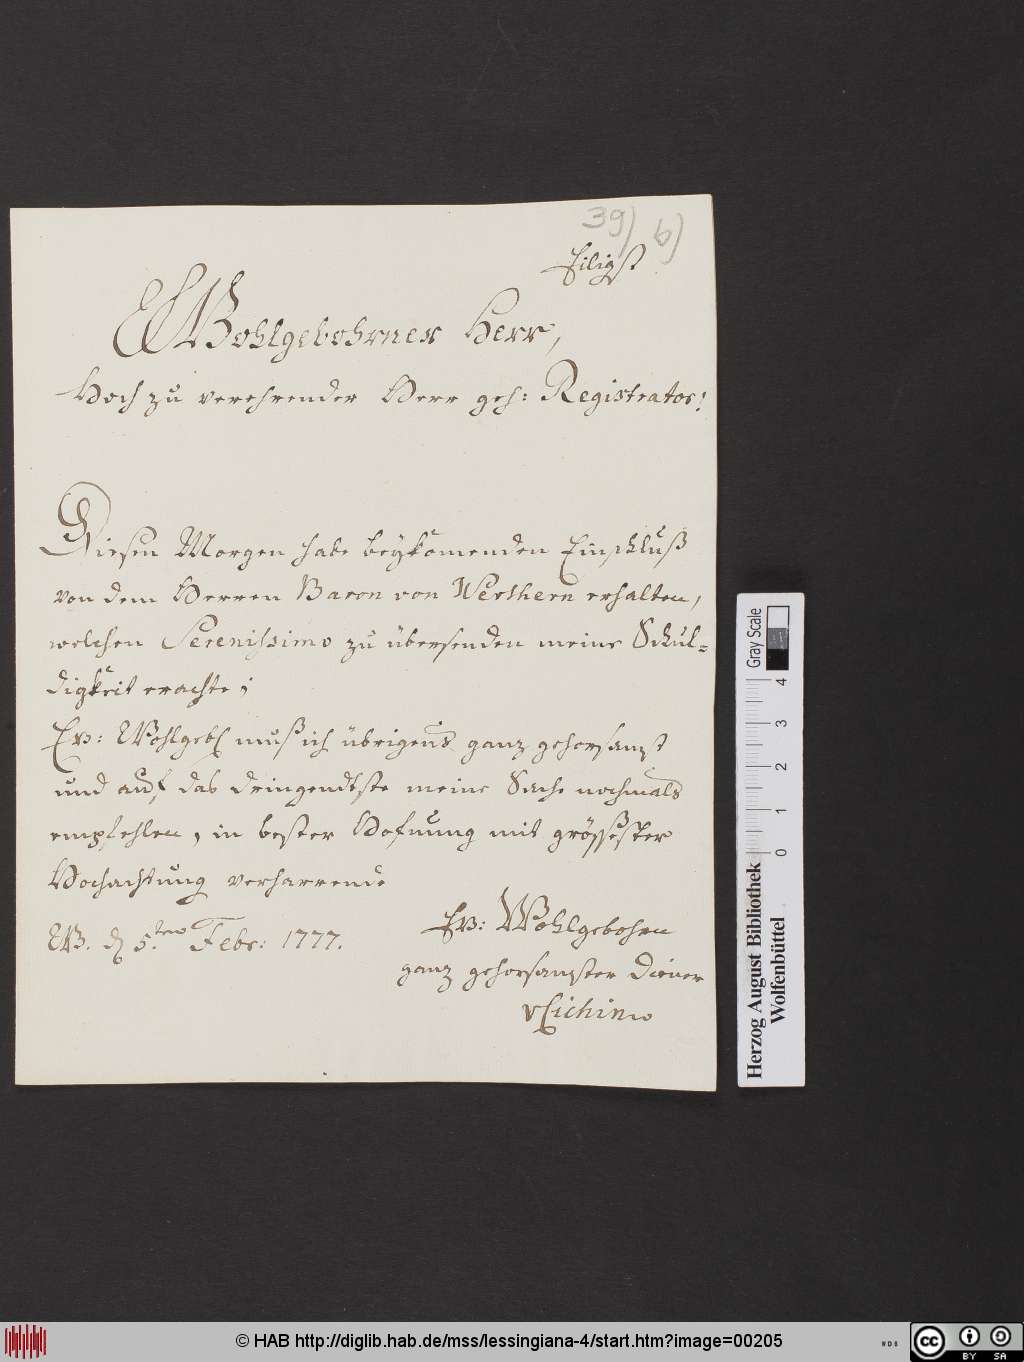 39) b)
Eiligst
Wohlgebohrner Herr,
Hoch zu verehrender Herr geh: Registrator!
Diesen Morgen habe beykomenden Einschluß
von dem Herren Baron von Werthern erhalten,
welchen Serenissimo zu übersenden meine Schul=
digkeit erachte;
Ew: Wohlgeb muß ich übrigens ganz gehorsamst
und auf das dringendste meine Sache nochmals
empfehlen, in bester Hofnung mit grössester
Hochachtung verharrende
W. d 5.ten Febr: 1777.
Ew: Wohlgebohrn
ganz gehorsamster Diener
Gray Scale
4 3 2 1 0
Herzog August Bibliothek
Wolfenbüttel
© HAB http://diglib.hab.de/mss/lessingiana-4/start.htm?image=00205
WDB
cc BY SA